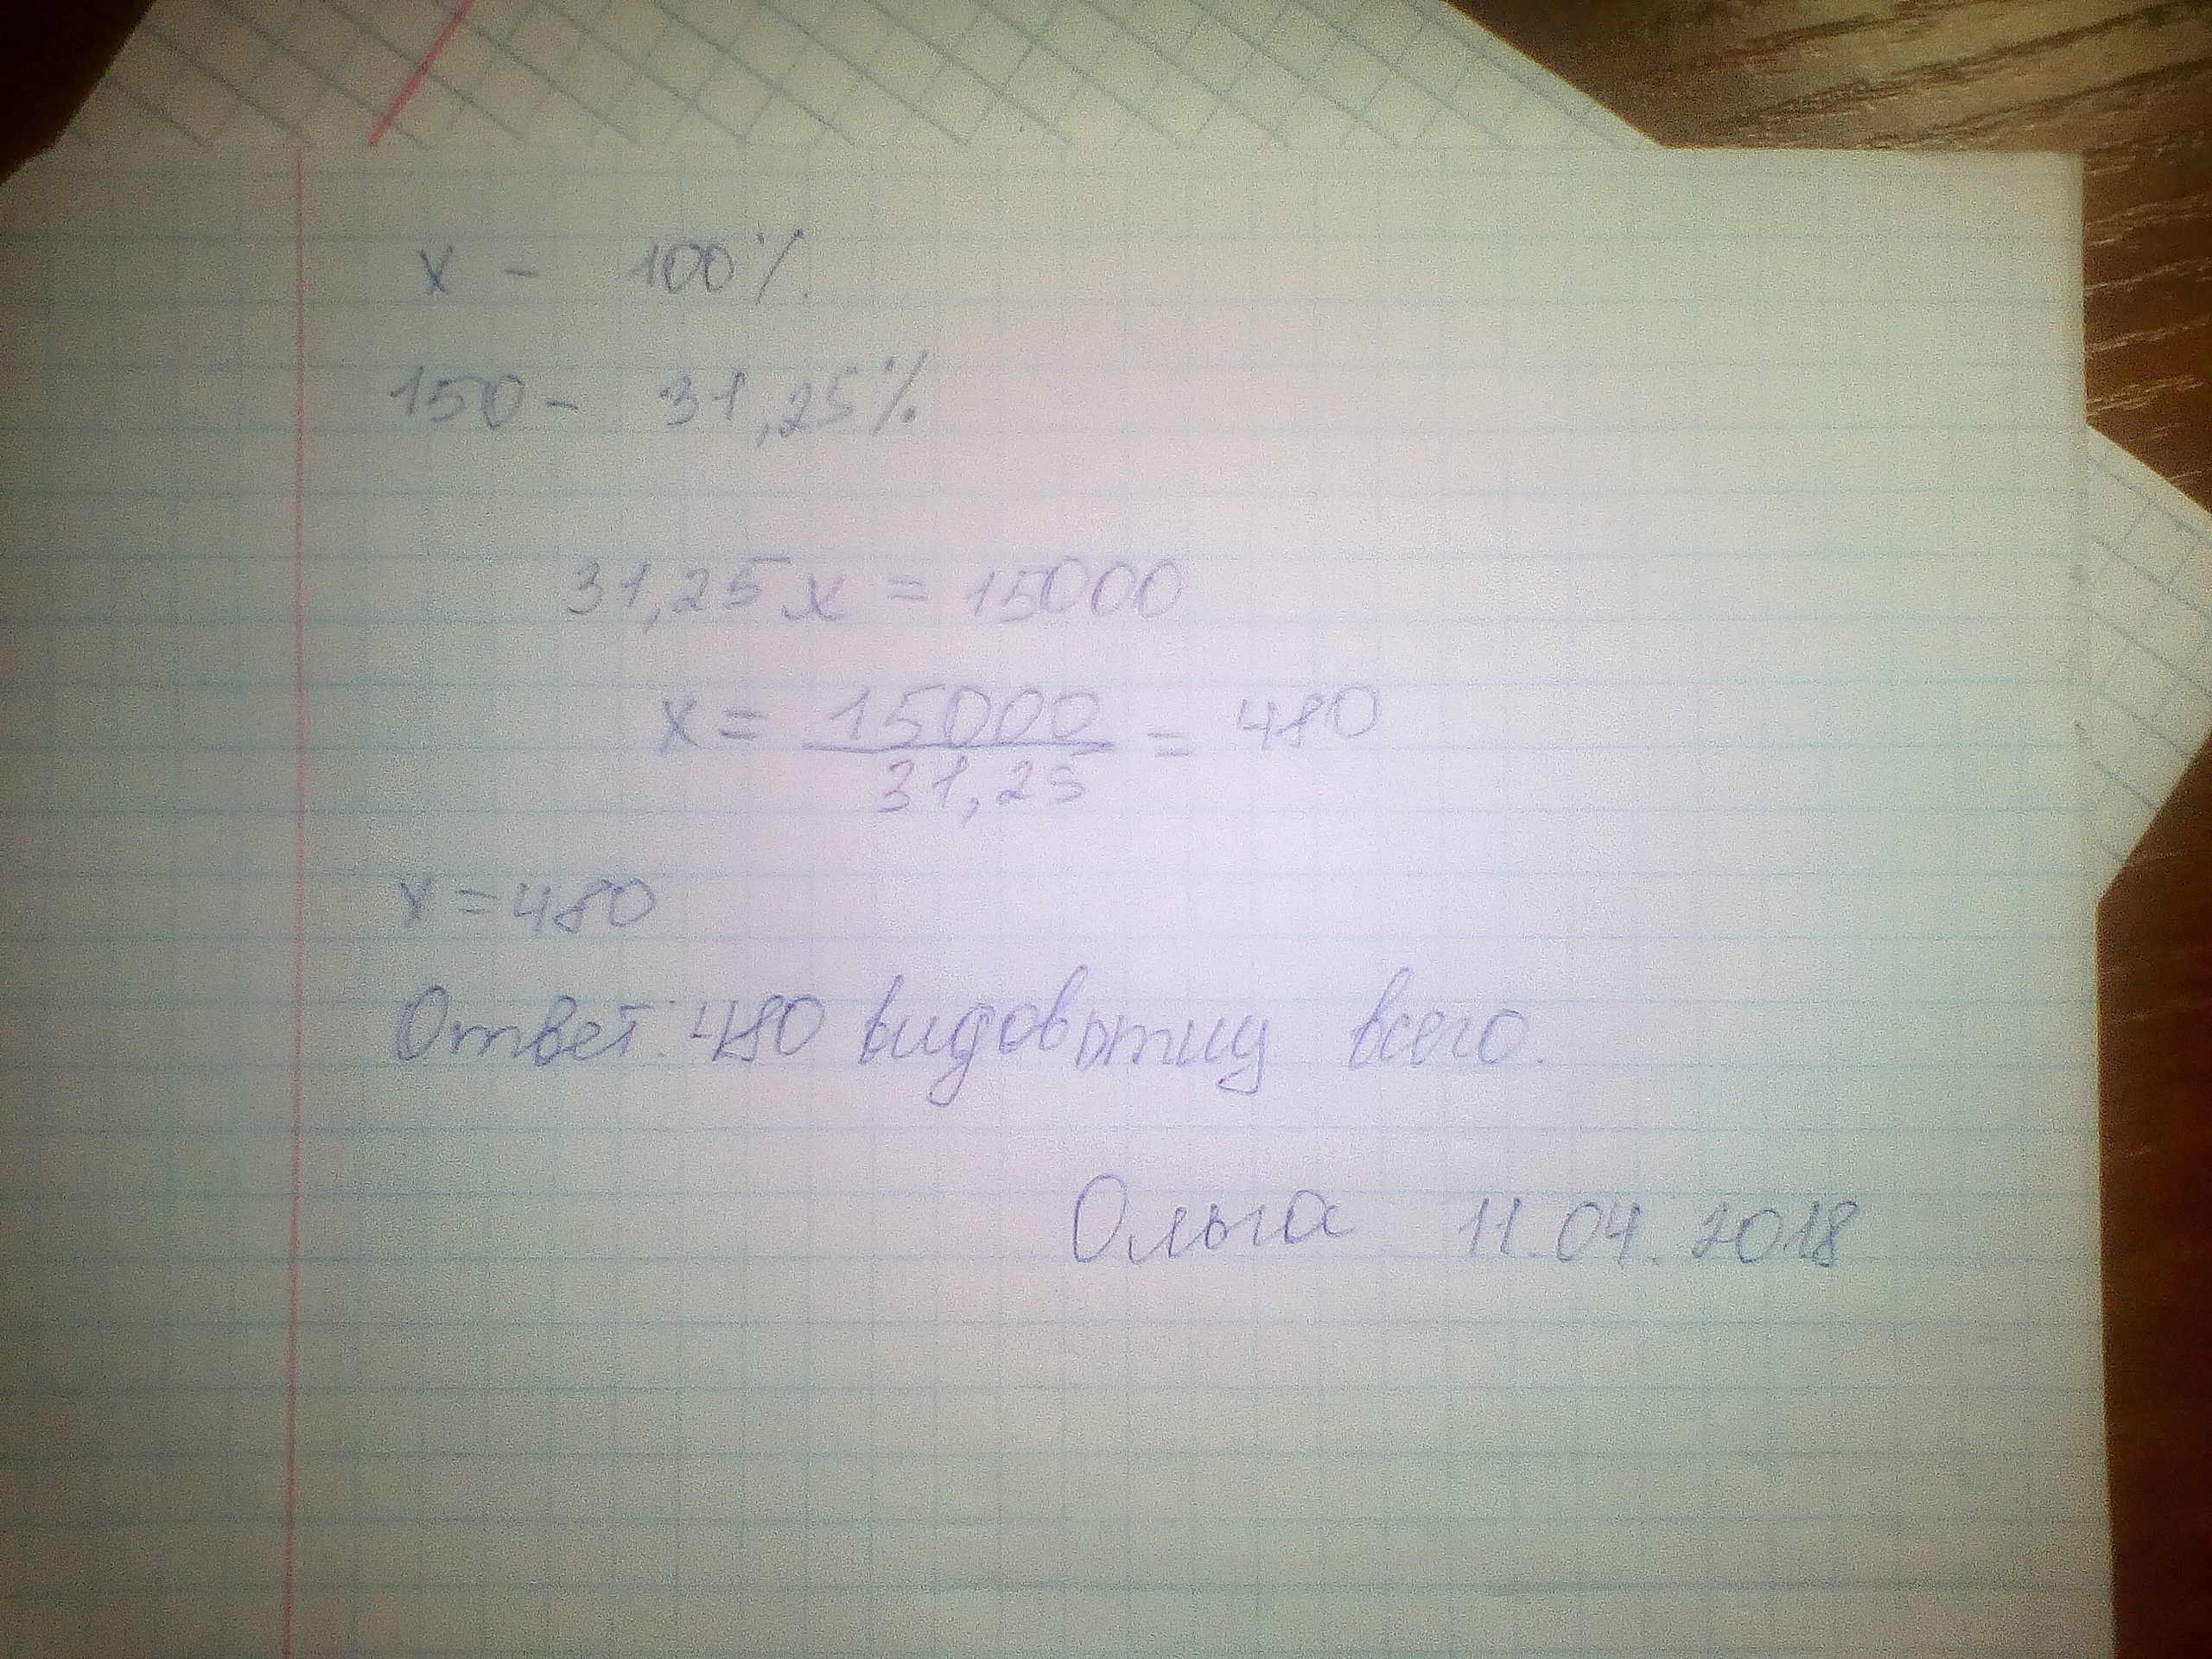 x - 100%
150 - 31,25%
31,25x = 15000
x = 15000 / 31,25 = 480
x = 480
Ответ: 480 видовптиц всего.
Ольга 11.04.2018